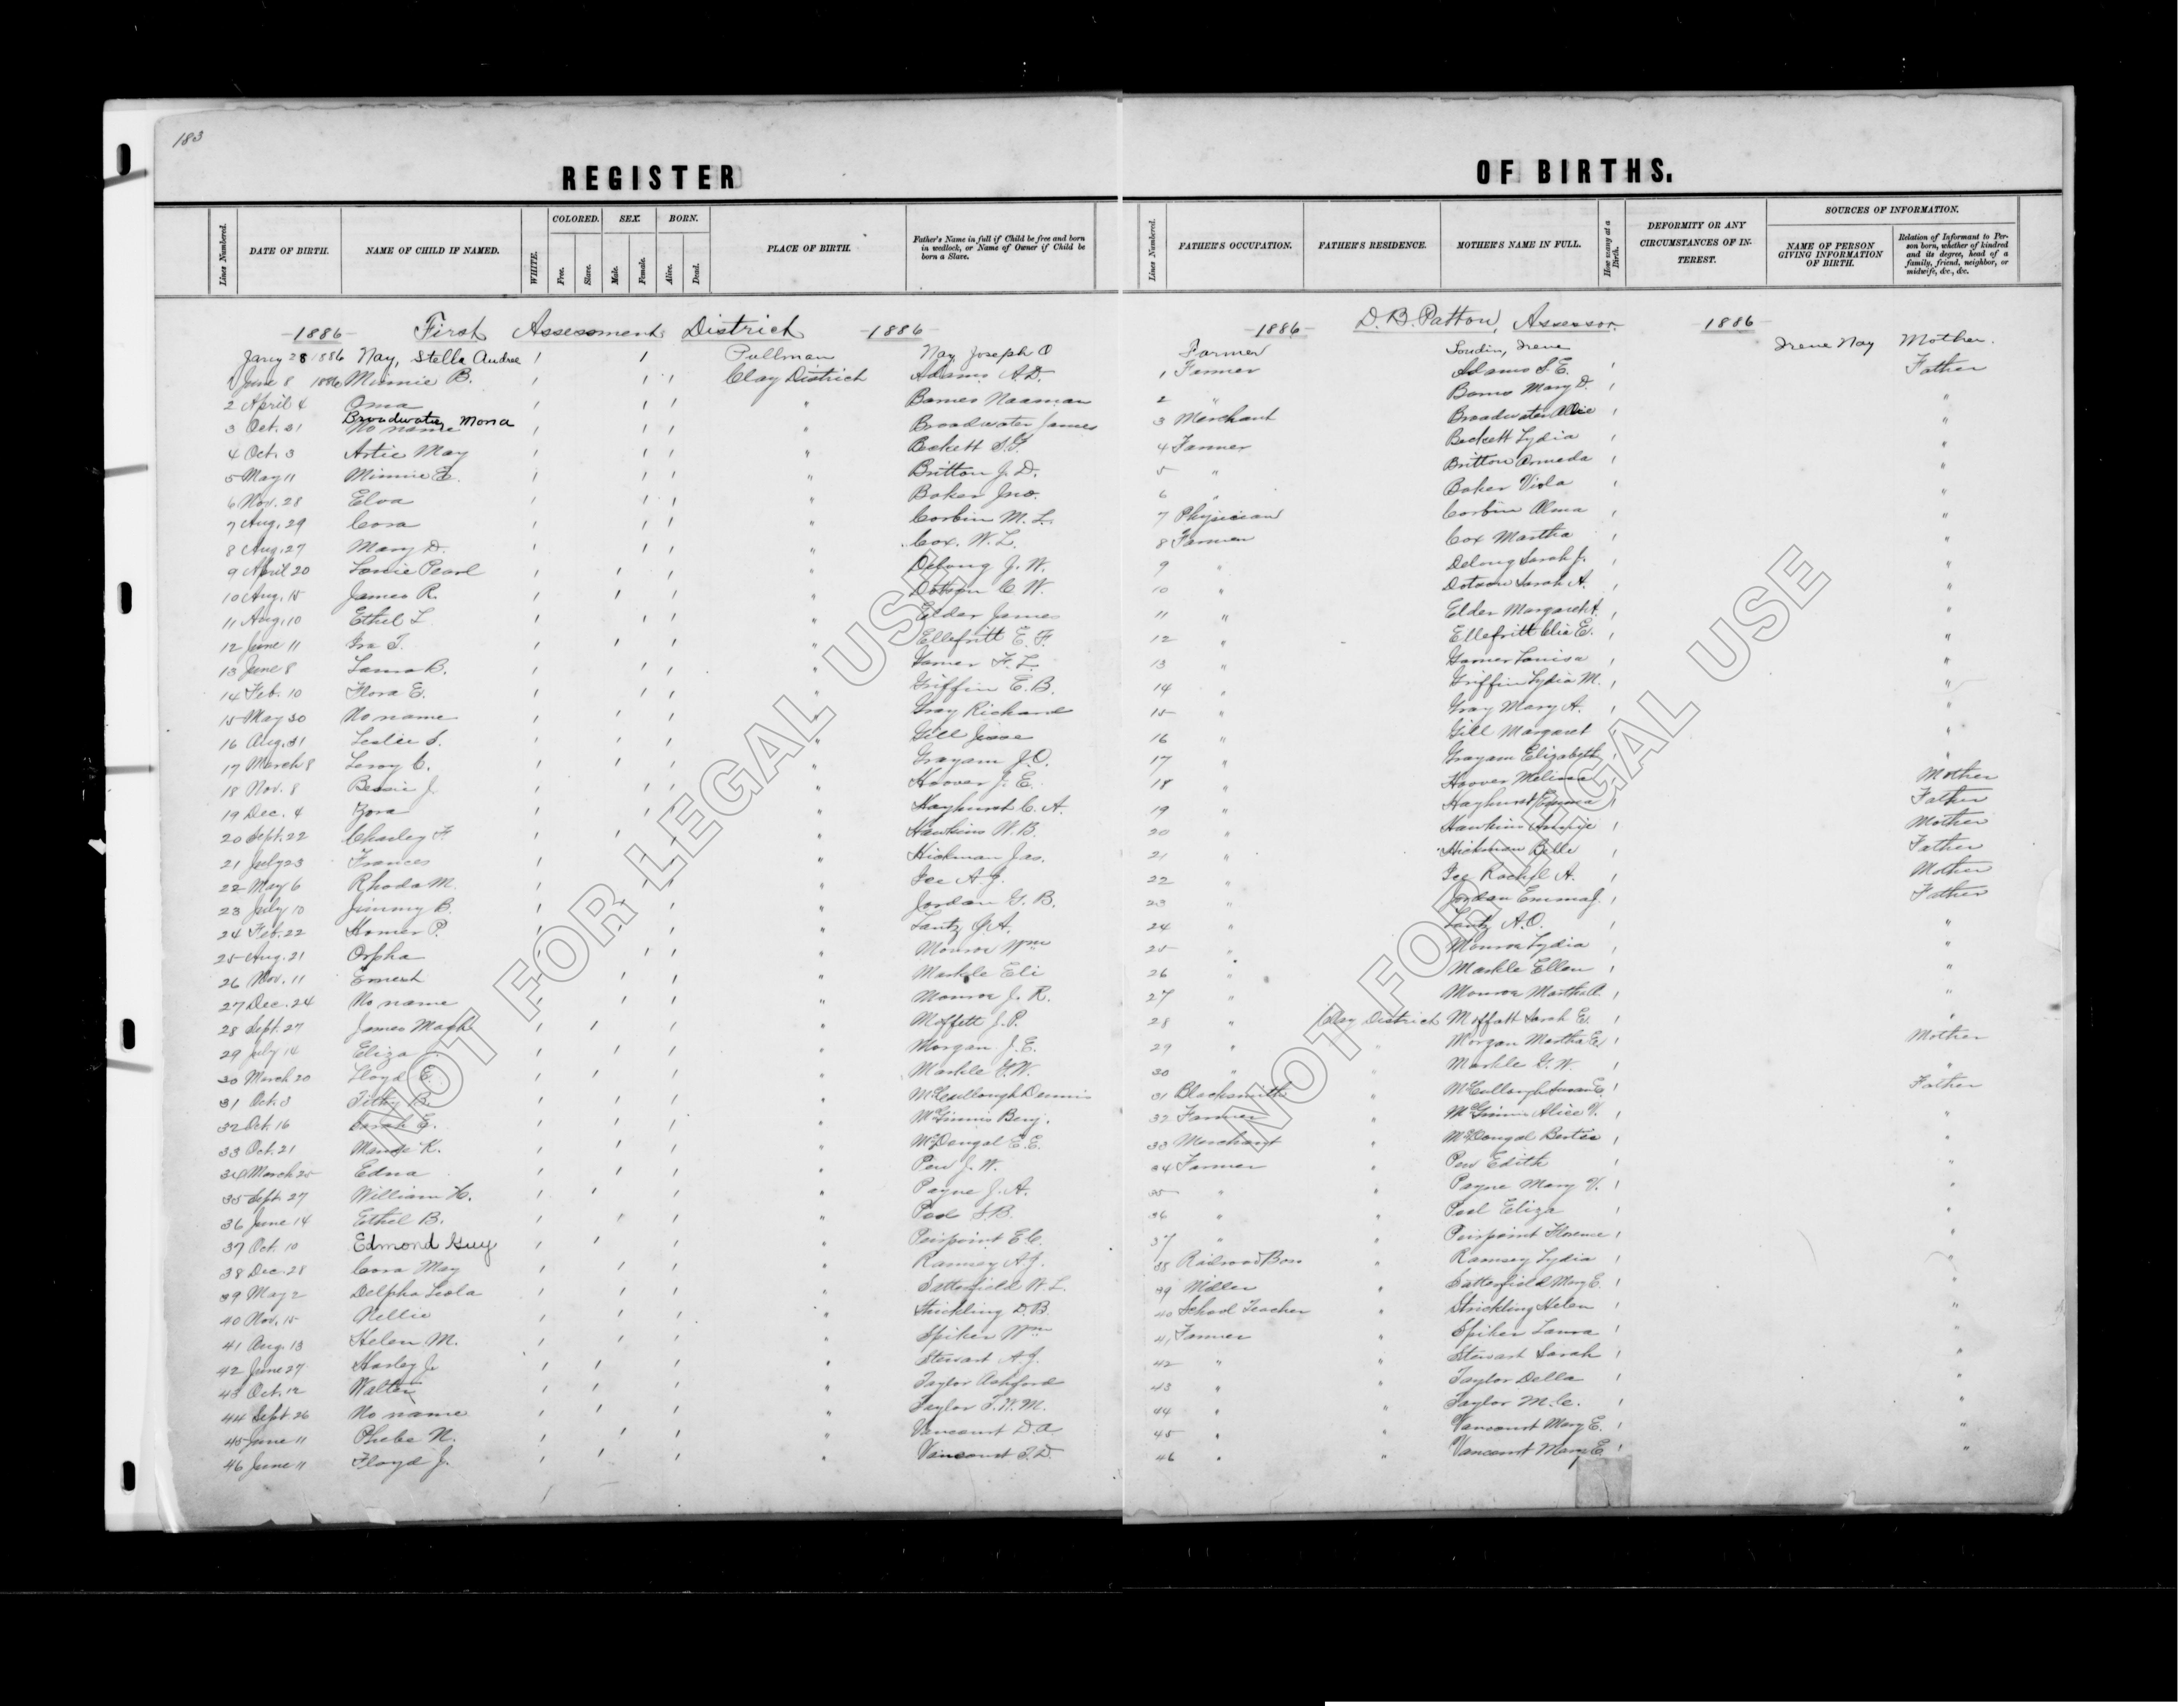 183
REGISTER OF BIRTHS.
Lines Numbered. DATE OF BIRTH. NAME OF CHILD IF NAMED. WHITE. COLORED. Free. Slave. SEX. Male. Female. BORN. Alive. Dead. PLACE OF BIRTH. Father's Name in full if Child be free and born in wedlock, or Name of Owner if Child be born a Slave. Lines Numbered. FATHER'S OCCUPATION. FATHER'S RESIDENCE. MOTHER'S NAME IN FULL. How many at a Birth. DEFORMITY OR ANY CIRCUMSTANCES OF INTEREST. SOURCES OF INFORMATION. NAME OF PERSON GIVING INFORMATION OF BIRTH. Relation of Informant to Person born, whether of kindred and its degree, head of a family, friend, neighbor, or midwife, &c., &c.
-1886- First Assessment District -1886- -1886- D. B. Patton, Assessor. 1886-
Jany 28 1886 Nay, Stella Audree ' ' Pullman Nay, Joseph O Farmer Irene Irene Nay Mother.
1 June 8 1886 Minnie B. ' ' ' Clay District Adams A.D. 1 Farmer Adams S.E. ' Father
2 April 4 Oma ' ' ' " Barnes Naaman 2 " Barnes Mary D. ' "
3 Oct. 31 No name Broadwater, Mona ' ' ' " Broadwater James 3 Merchant Broadwater ' "
4 Oct. 3 Artie May ' ' ' " Beckett S.F. 4 Farmer Beckett Lydia ' "
5 May 11 Minnie E. ' ' ' " Britton J. D. 5 " Britton Armeda ' "
6 Nov. 28 Elva ' ' ' " Baker Jno. 6 " Baker Viola ' "
7 Aug. 29 Cora ' ' ' " Corbin M. L. 7 Physician Corbin Alma ' "
8 Aug. 27 Mary D. ' ' ' " Cox. W. L. 8 Farmer Cox Martha ' "
9 April 20 Pearl ' ' ' " Delong J. W. 9 " Delong Sarah J. ' "
10 Aug. 15 James R. ' ' ' " Dotson C. W. 10 " Dotson Sarah A. ' "
11 Aug. 10 Ethel L ' ' ' " Elder James 11 " Elder Margaret A. ' "
12 June 11 Ira T. ' ' ' " Ellefritt E. F. 12 " Ellefritt E. ' "
13 June 8 B. ' ' ' " Garner F. L. 13 " Garner Louisa ' "
14 Feb. 10 Flora E. ' ' ' " Griffin E. B. 14 " Griffin Lydia M. ' "
15 May 30 No name ' ' ' " Gray Richard 15 " Gray Mary A. ' "
16 Aug. 31 Leslie S. ' ' ' " Gill Jesse 16 " Gill Margaret "
17 March 8 Leroy C. ' ' ' " Grayam J.O. 17 " Grayam Elizabeth ' "
18 Nov. 8 Bessie J ' ' ' " Hoover J. E. 18 " Hoover Melissa ' Mother
19 Dec. 4 Zora ' ' ' " Hayhurst C. A. 19 " Hayhurst Emma ' Father
20 Sept. 22 Charley F ' ' ' " Hawkins W. B. 20 " Hawkins Annie ' Mother
21 July 23 Frances ' ' ' " Hickman Jas. 21 " Hickman Belle ' Father
22 May 6 Rhoda M. ' ' ' " Ice A. J. 22 " Ice Rachel A. ' Mother
23 July 10 Jimmy B. ' ' ' " Jordan G. B. 23 " Jordan Emma J. ' Father
24 Feb. 22 Homer P. ' ' ' " Lantz J. A. 24 " Lantz A.O. ' "
25 Aug. 21 Orpha ' ' ' " Monroe Wm 25 " Monroe Lydia ' "
26 Nov. 11 Ernest ' ' ' " Markle Eli 26 " Markle Ellen ' "
27 Dec. 24 No name ' ' ' " Monroe J. R. 27 " Monroe Martha A. ' "
28 Sept. 27 James ' ' ' " Moffett J. P. 28 " Clay District Moffatt Sarah E. ' "
29 July 14 Eliza ' ' ' " Morgan J. E. 29 " " Morgan Martha E. ' Mother
30 March 20 Lloyd E. ' ' ' " Markle G. W. 30 " " Markle G. W. ' "
31 Oct. 3 B. ' ' ' " McCullough Dennis 31 Blacksmith " McCullough Susan E. ' Father
32 Oct. 16 Sarah E. ' ' ' " McGinnis Benj. 32 Farmer " McGinnis Alice V. ' "
33 Oct. 21 Maude K. ' ' ' " McDougal E. E. 33 Merchant " McDougal Bertie ' "
34 March 25 Edna ' ' ' " Pew J. W. 34 Farmer " Pew Edith ' "
35 Sept. 27 William H. ' ' ' " Payne J. A. 35 " " Payne Mary V. ' "
36 June 14 Ethel B. ' ' ' " Pool S.B. 36 " " Pool Eliza ' "
37 Oct. 10 Edmond Guy ' ' ' " Peirpoint E.C. 37 " " Peirpoint Florence ' "
38 Dec. 28 Cora May ' ' ' " Ramsey A.J. 38 Railroad Boss " Ramsey Lydia ' "
39 May 2 Delpha Leola ' ' ' " Satterfield W. L. 39 Miller " Satterfield Mary E. ' "
40 Nov. 15 Nellie ' ' ' " Strickling D. B. 40 School Teacher " Strickling Helen ' "
41 Aug. 13 Helen M. ' ' ' " Spiker Wm 41 Farmer " Spiker Laura ' "
42 June 27 Harley J. ' ' ' " Stewart A.J. 42 " " Stewart Sarah ' "
43 Oct. 12 Walter ' ' ' " Taylor Ashford 43 " " Taylor Della ' "
44 Sept. 26 No name ' ' ' " Taylor T. W. M. 44 " " Taylor M. C. ' "
45 June 11 Phebe N. ' ' ' " Vancourt D. A. 45 " " Vancourt Mary E. ' "
46 June 11 Floyd J. ' ' ' " Vancourt D. 46 " " Vancourt Mary E. ' "
NOT FOR LEGAL USE
NOT FOR LEGAL USE